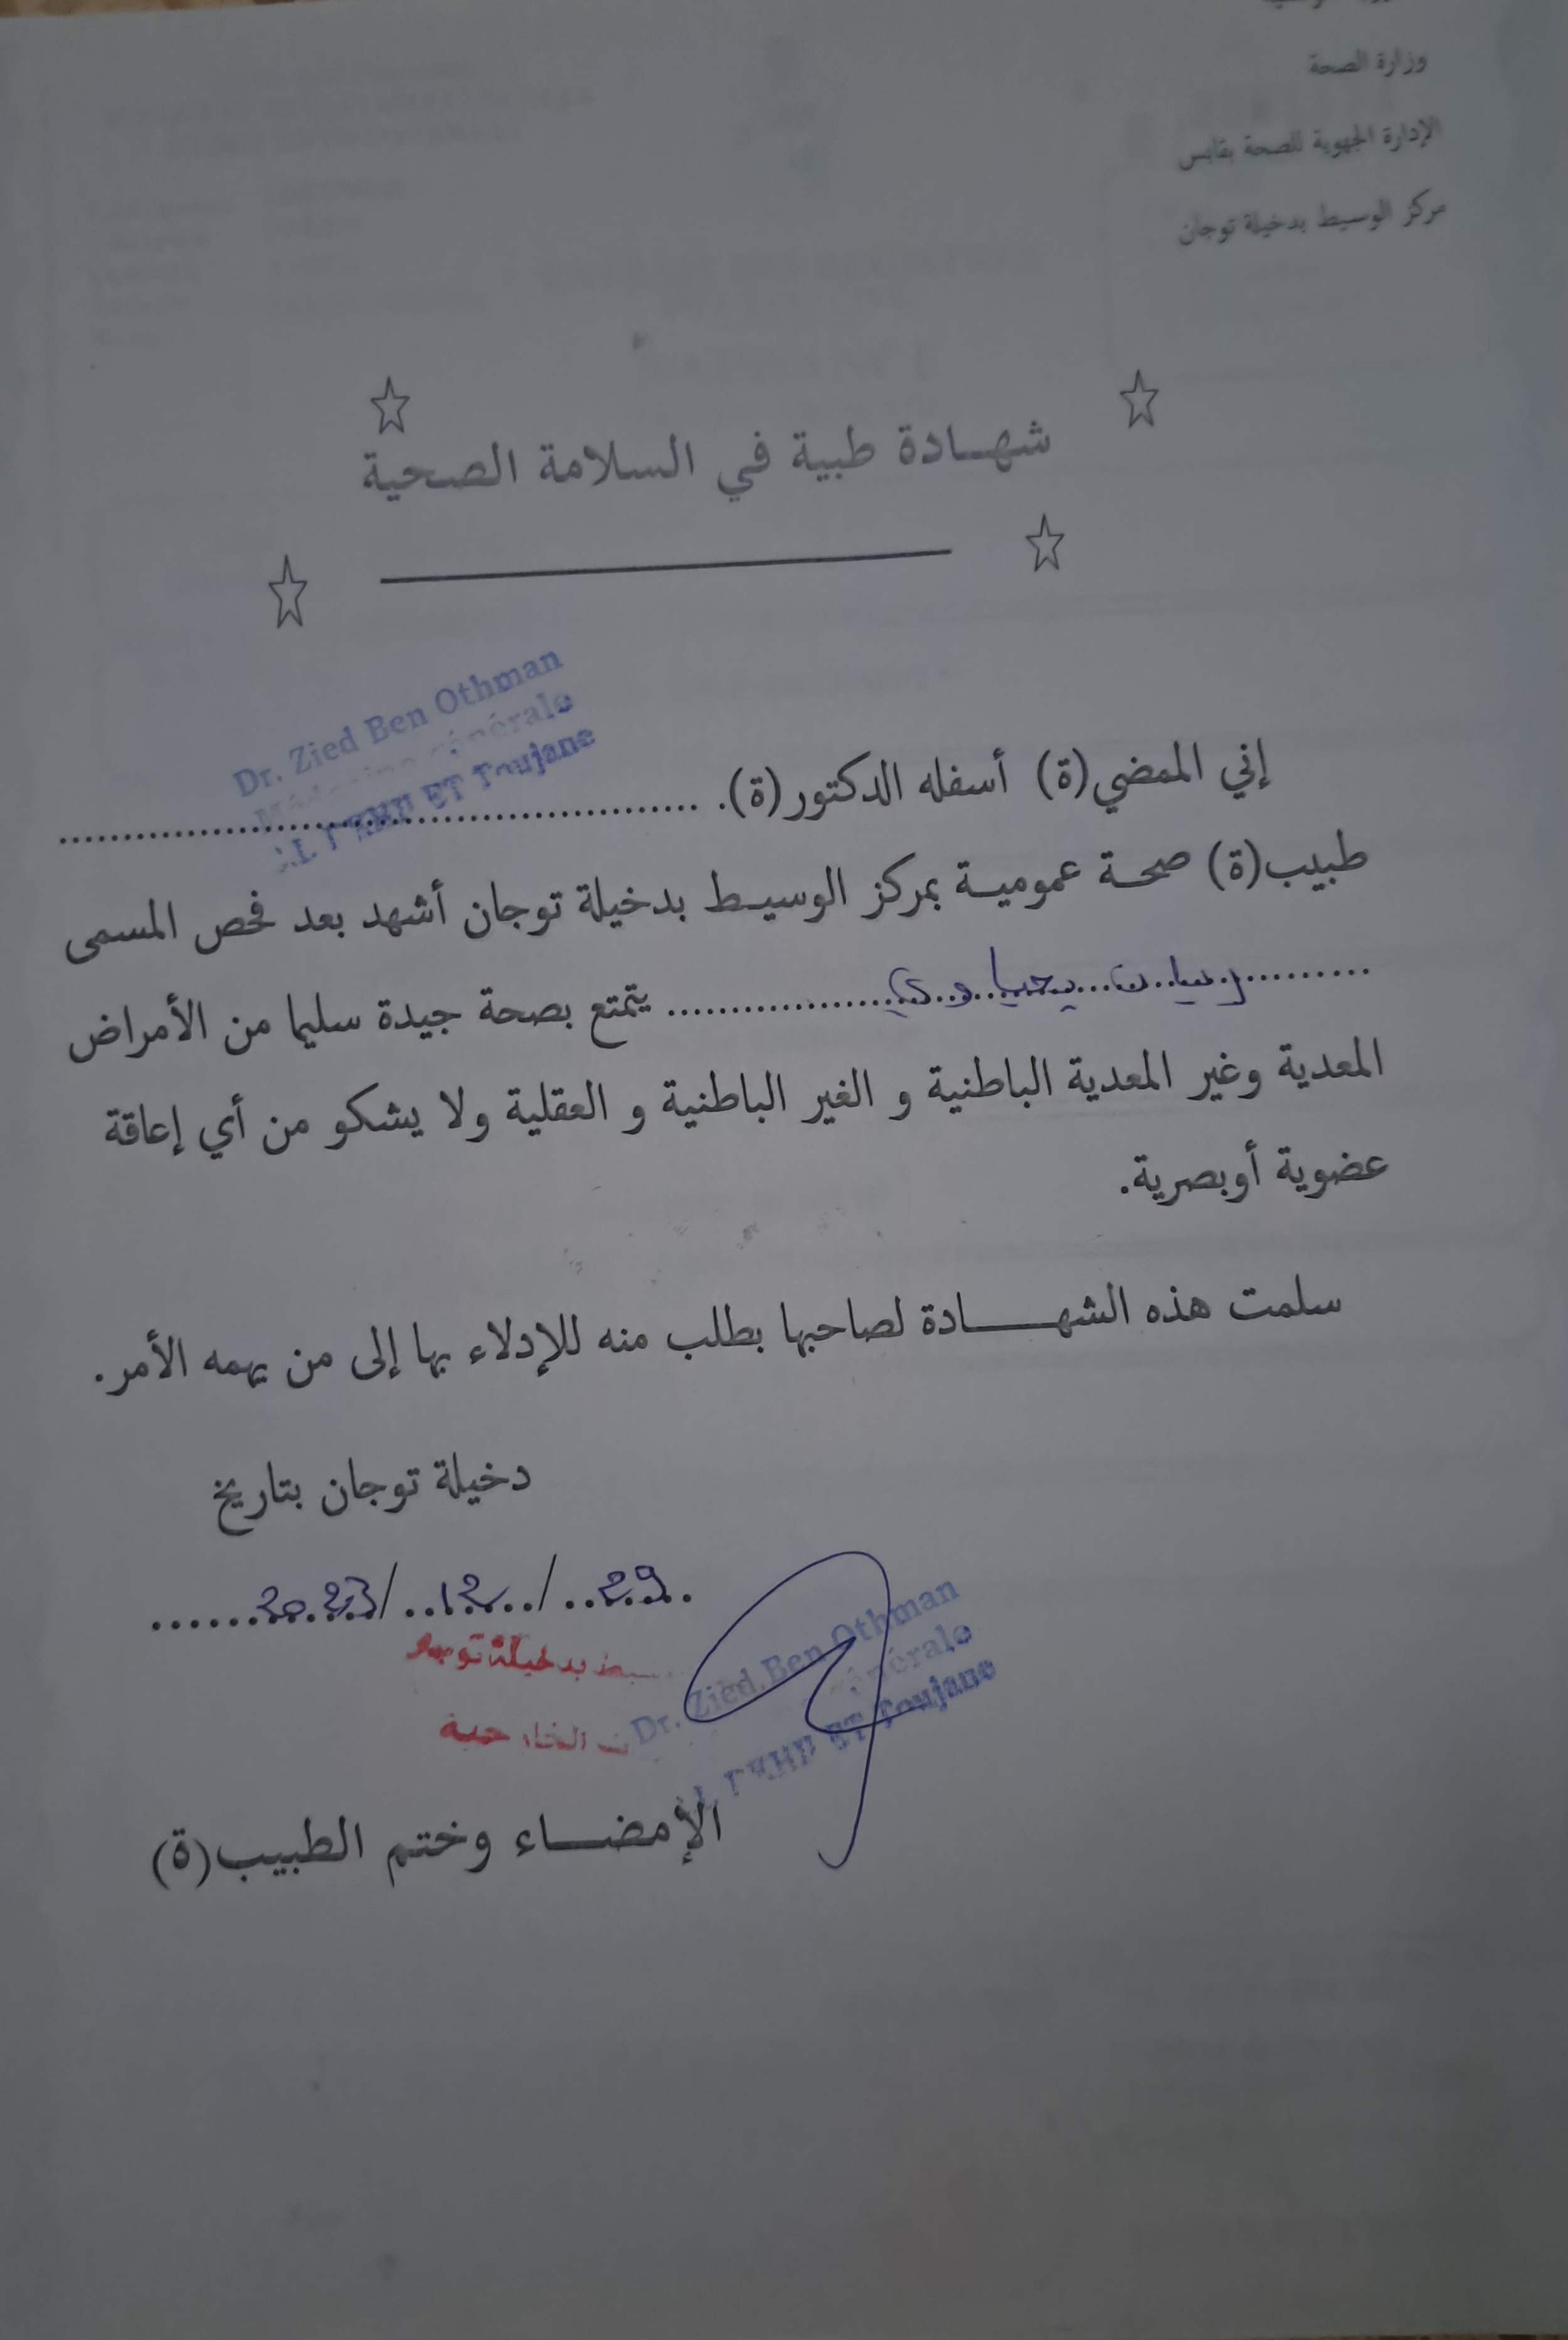 وزارة الصحة
الإدارة الجهوية للصحة بقابس
مركز الوسيط بدخيلة توجان
شهـادة طبية في السلامة الصحية
Dr. Zied Ben Othman
Générale
ET Toujane
إني الممضي(ة) أسفله الدكتور(ة). ..........................................
طبيب(ة) صحة عمومية بمركز الوسيط بدخيلة توجان أشهد بعد فحص المسمى
ريان يحياوي ................ يتمتع بصحة جيدة سليما من الأمراض
المعدية وغير المعدية الباطنية و الغير الباطنية و العقلية ولا يشكو من أي إعاقة
عضوية أوبصرية.
سلمت هذه الشهـــــادة لصاحبها بطلب منه للإدلاء بها إلى من يهمه الأمر.
دخيلة توجان بتاريخ
29/12/2023
بدخيلة
Dr. Zied Ben Othman
Générale
ET Toujane
الإمضــاء وختم الطبيب(ة)